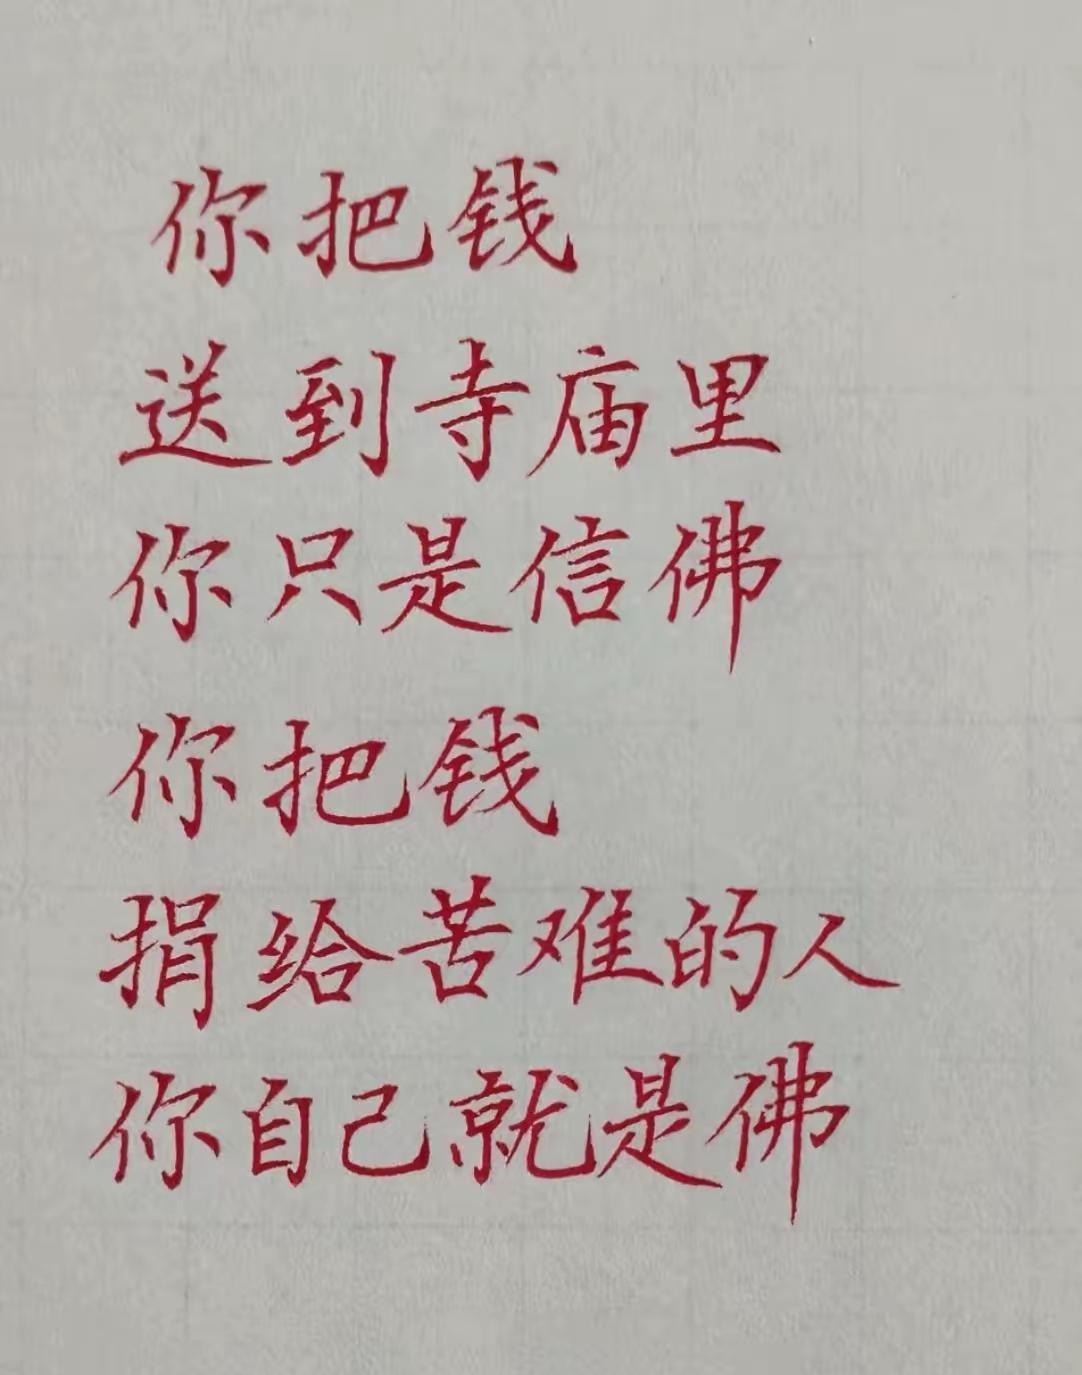 你把钱
送到寺庙里
你只是信佛
你把钱
捐给苦难的人
你自己就是佛